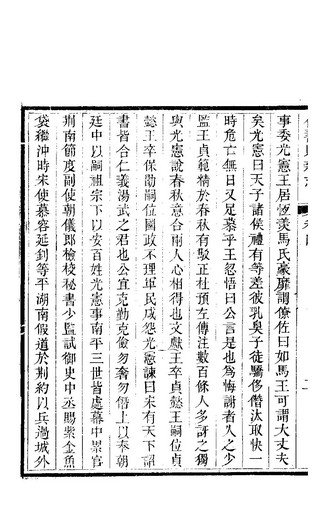 事委光憲王居恆羨馬氏豪靡謂僚佐曰如馬王可謂大丈夫
矣光憲曰天子諸侯禮有等差彼乳臭子徒驕侈僭汰取快一
時危亡無日又足慕乎王忽悟曰公言是也爲悔謝者人之少
監王貞範精於春秋有駁正杜預左傳注數百條人多訝之獨
與光憲說春秋意合兩人心相得也文獻王卒貞懿王嗣位貞
懿王卒保勖嗣位國政不理軍民咸怨光憲諫曰未有天下詔
書皆合仁義湯武之君也公宜克勤克儉勿奢勿僭上以奉朝
廷中以嗣祖宗下以安百姓光憲事南平三世皆處幕中累官
荆南節度副使朝儀郎檢校秘書少監試御史中丞賜紫金魚
袋繼沖時宋使慕容延釗等平湖南假道於荆約以兵過城外